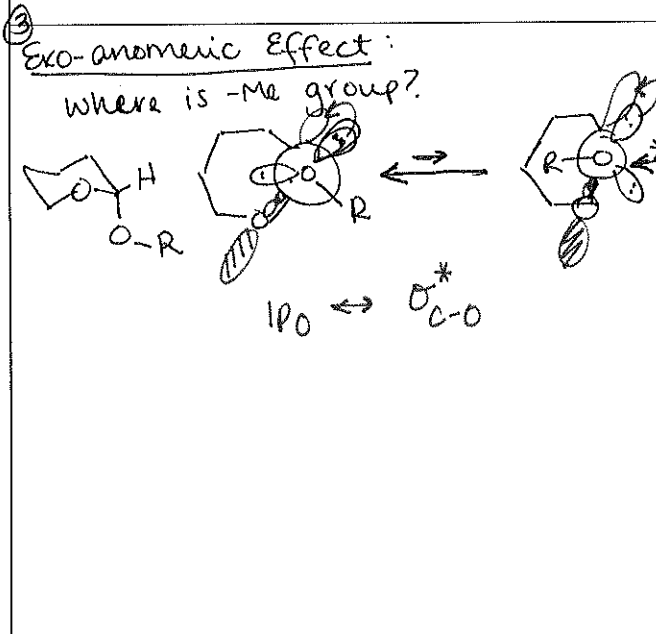 ③
Exo-anomeric Effect:
where is -Me group?
O H
O-R
O
R
O
R O
O
lp O ↔ σ* C-O